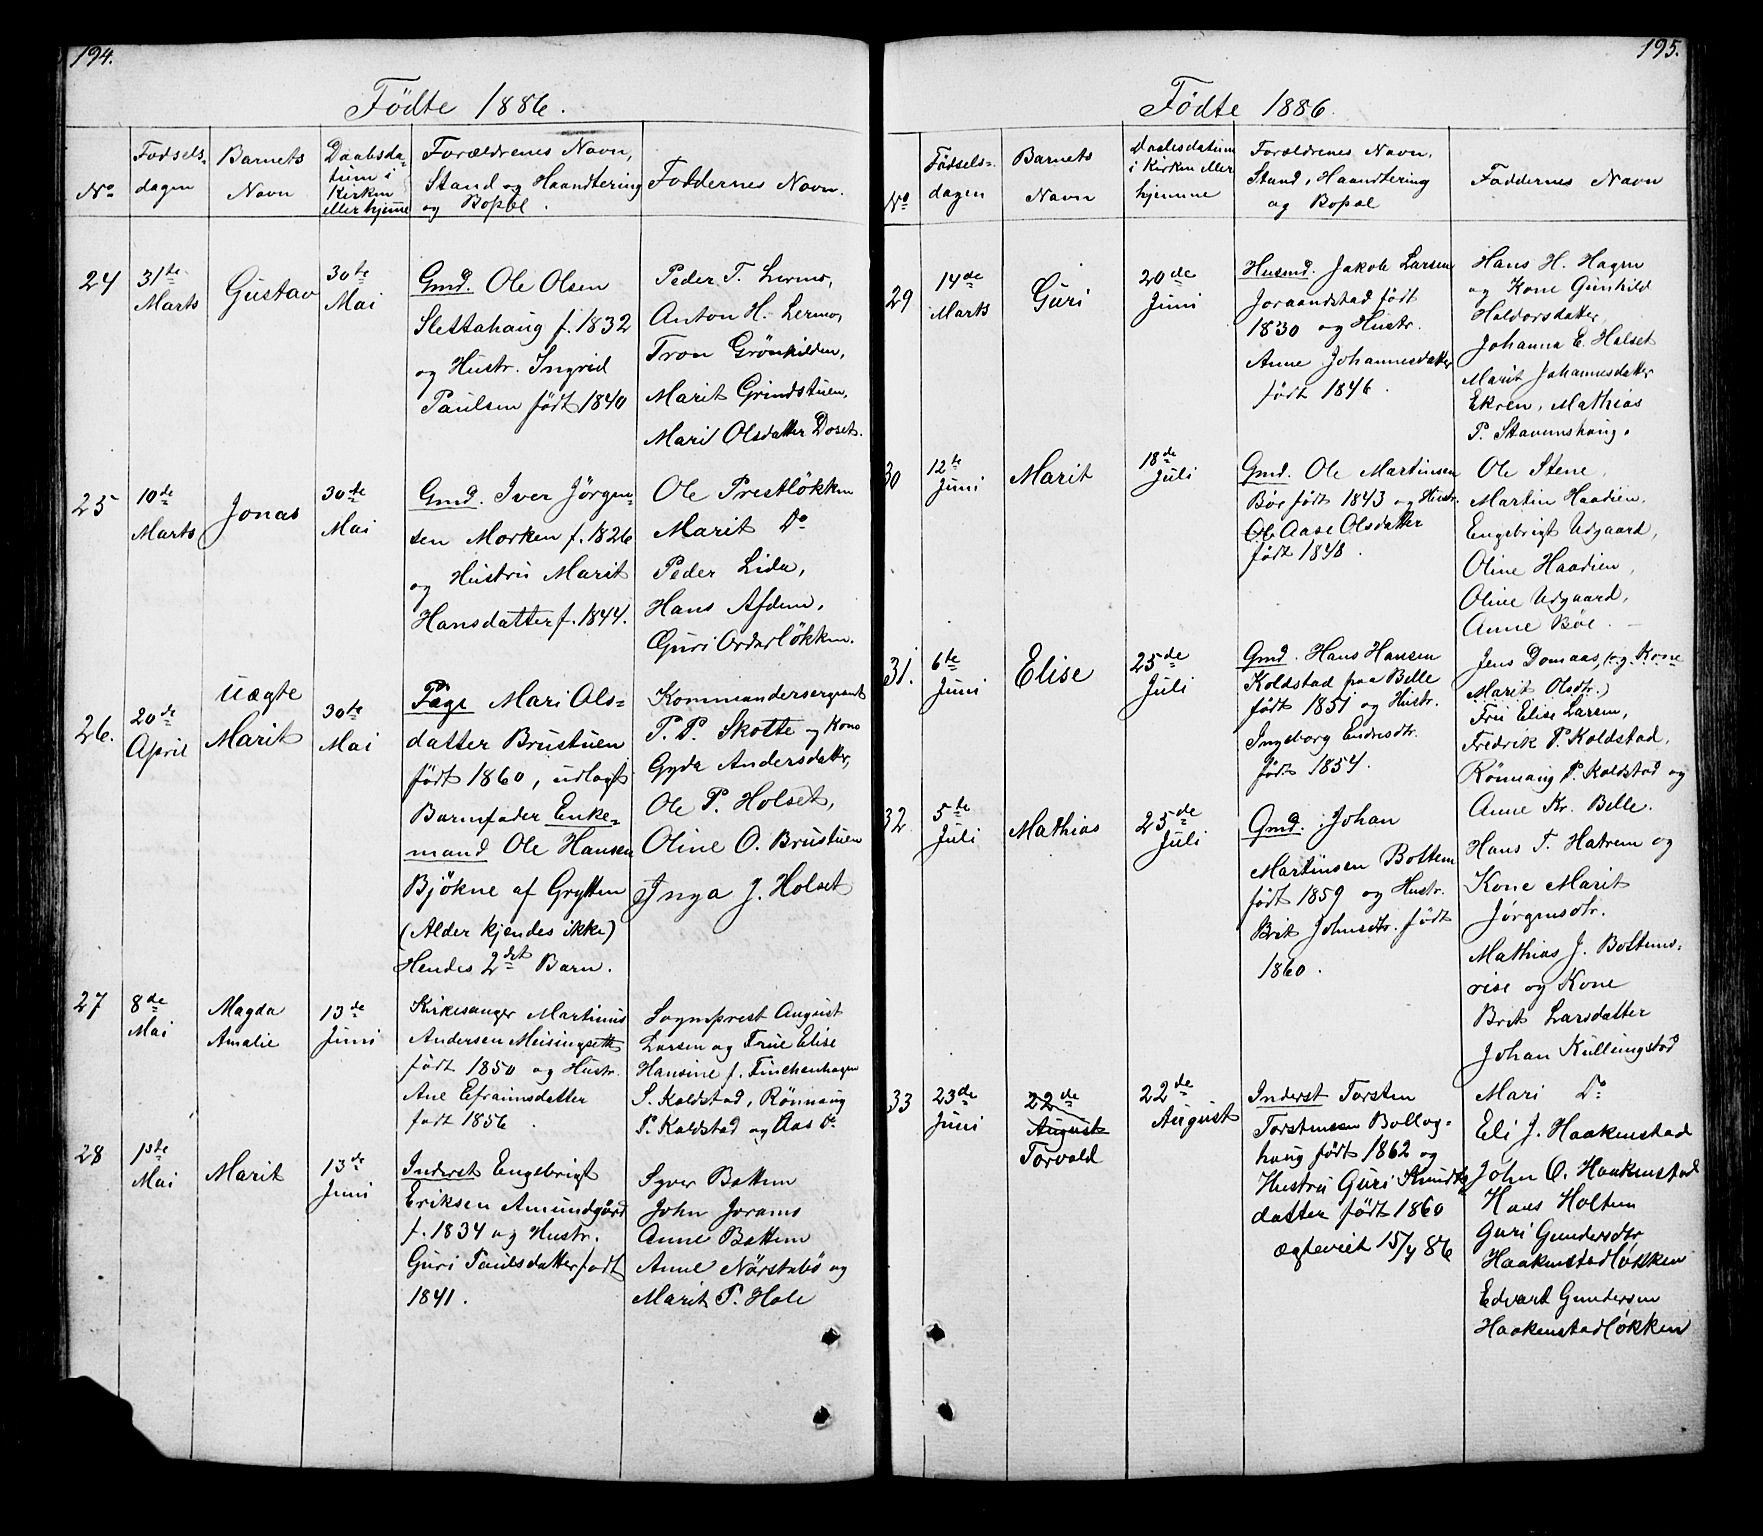 194.
Födte 1886.
No
Födsels-
dagen
Barnets
Navn
Daabsda-
tum i
Kirken
eller hjemme
Forældrenes Navn,
Stand og Haandtering
og Bopæl.
Faddernes Navn.
24
31te
Marts
Gustav
30te
Mai
Gmd. Ole Olsen
Slettahaug f. 1832
og Hustr. Ingrid
Paulsen födt 1840
Peder T. Lermo,
Anton H. Lermo,
Tron Grönkilden,
Marit Grindstuen,
Mari Olsdatter Doset.
25
10de
Marts
Jonas
30te
Mai
Gmd. Iver Jörgen-
sen Morken f. 1826
og Hustru Marit
Hansdatter f. 1844.
Ole Prestlökken
Marit Do
Peder Lida,
Hans Afdem,
Guri Orderlökken.
26.
20de
April
Uægte
Marit
30te
Mai
Pige Mari Ols-
datter Brustuen
födt 1860, udlagt
Barnefader Enke-
mand Ole Hansen
Bjökne af Grytten
(Alder kjendes ikke)
Hendes 2det Barn.
Kommandersergeant
P. P. Skotte og Kone
Gyda Andersdatter,
Ole P. Holset,
Oline O. Brustuen
Inga J. Holset
27
8de
Mai
Magda
Amalie
13de
Juni
Kirkesanger Martinus
Andersen Meisingseth
födt 1850 og Hustr.
Ane Efraimsdatter
födt 1856.
Sogneprest August
Larsen og Frue Elise
Hansine f. Finckenhagen
S. Koldstad, Rönnaug
P. Koldstad og Aas Do
28
1ste
Mai
Marit
13de
Juni
Inderst Engebrigt
Eriksen Amundgård
f. 1834 og Hustr.
Guri Paulsdatter födt
1841.
Syver Bottem
John Jorams
Anne Bottem
Anne Nörstebö og
Marit P. Hole
195.
Födte 1886.
No
Födsels-
dagen
Barnets
Navn
Daabsdatum
i Kirken eller
hjemme
Forældrenes Navn,
Stand, Haandtering
og Bopæl
Faddernes Navn
29
14de
Marts
Guri
20de
Juni
Husmd. Jakob Larsen
Joraandstad födt
1830 og Hustr.
Anne Johannesdatter
födt 1846.
Hans H. Hagen
og Kone Gunhild
Haldorsdatter,
Johanna E. Holset
Marit Johannesdatter
Ekren, Mathias
P. Stavemshaug.
30
12te
Juni
Marit
18de
Juli
Gmd. Ole Martinsen
Bör födt 1843 og Hustr.
Aase Olsdatter
födt 1848.
Ole Stene,
Martin Haadien,
Engebrigt Udgaard,
Oline Haadien,
Oline Udgaard,
Anne Böe.
31.
6te
Juni
Elise
25de
Juli
Gmd. Hans Hansen
Koldstad paa Belle
födt 1851 og Hustr.
Ingeborg Endresdtr.
födt 1854.
Jens Domaas, (og Kone
Marit Olsdtr.)
Frú Elise Larsen,
Fredrik P. Koldstad,
Rönnaug P. Koldstad og
Anne Kr. Belle.
32.
5te
Juli
Mathias
25de
Juli
Gmd. Johan
Martinsen Bottem
födt 1859 og Hustr.
Brit Johnsdtr. födt
1860.
Hans T. Hatrem og
Kone Marit
Jörgensdtr.
Mathias J. Bottems-
rise og Kone
Brit Larsdatter
Johan Kullingstad
Mari Do
33
23de
Juni
22de
August
Torvald
22de
August
Inderst Torsten
Torstensen Bollog-
haug födt 1862 og
Hustru Guri Knuds-
datter födt 1860
ægteviet 15/4 86
Eli J. Haakenstad
John O. Haakenstad
Hans Holten
Guri Gundersdtr
Haakenstadlökken
Edvart Gundersen
Haakenstadlökken